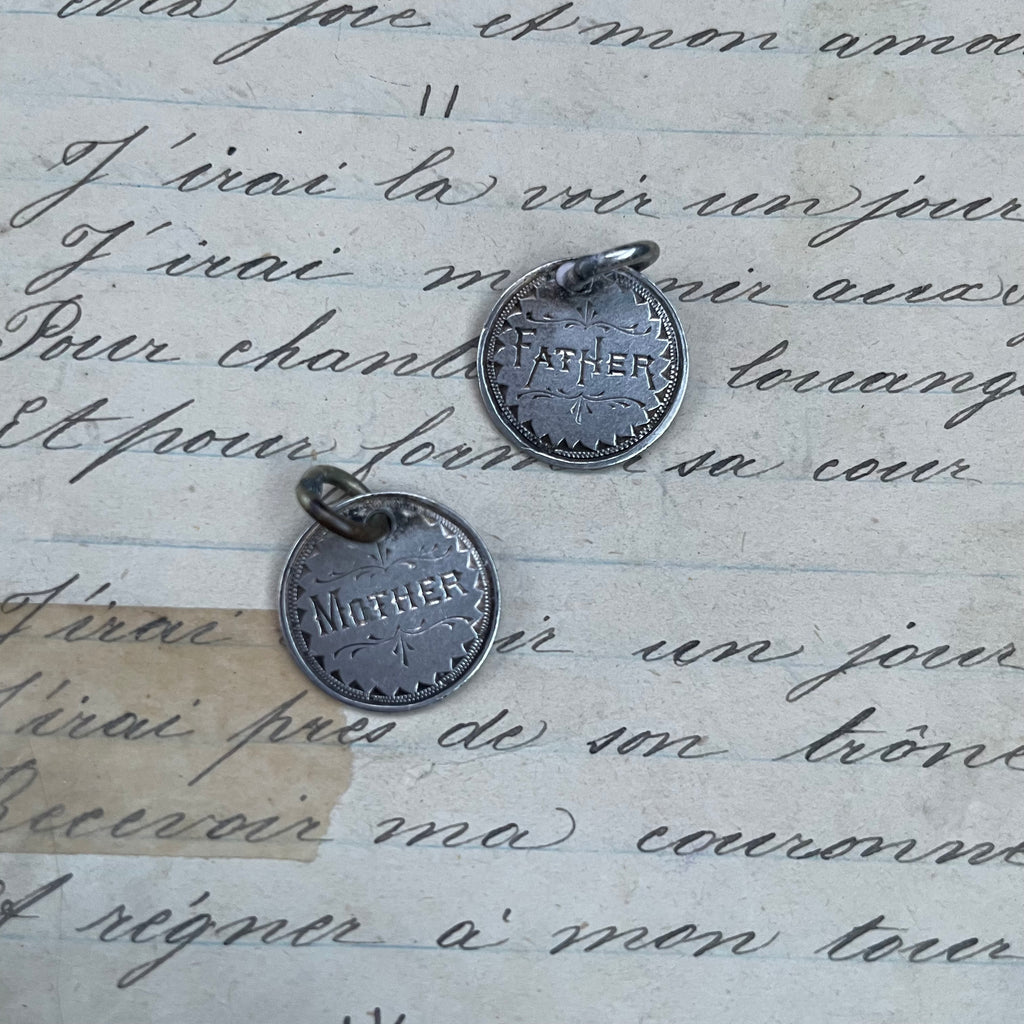 joie et mon amou
"
J'irai la voir un jour
J'irai m nir aux
Pour chant louang
Et pour form r sa cour
J'irai ir un jour
J'irai pres de son trône
Recevoir ma couronne
Et régner à mon tour
FATHER
MOTHER